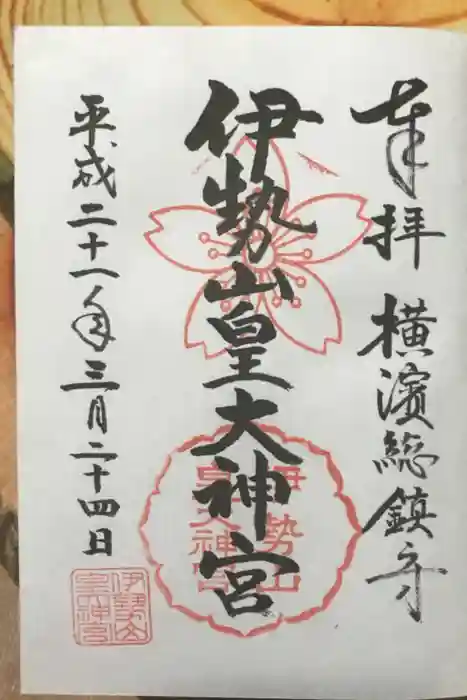 奉拝 横濱総鎮守
伊勢山皇大神宮
平成二十一年三月二十四日
伊勢山
皇大神宮
伊勢山
皇大神宮